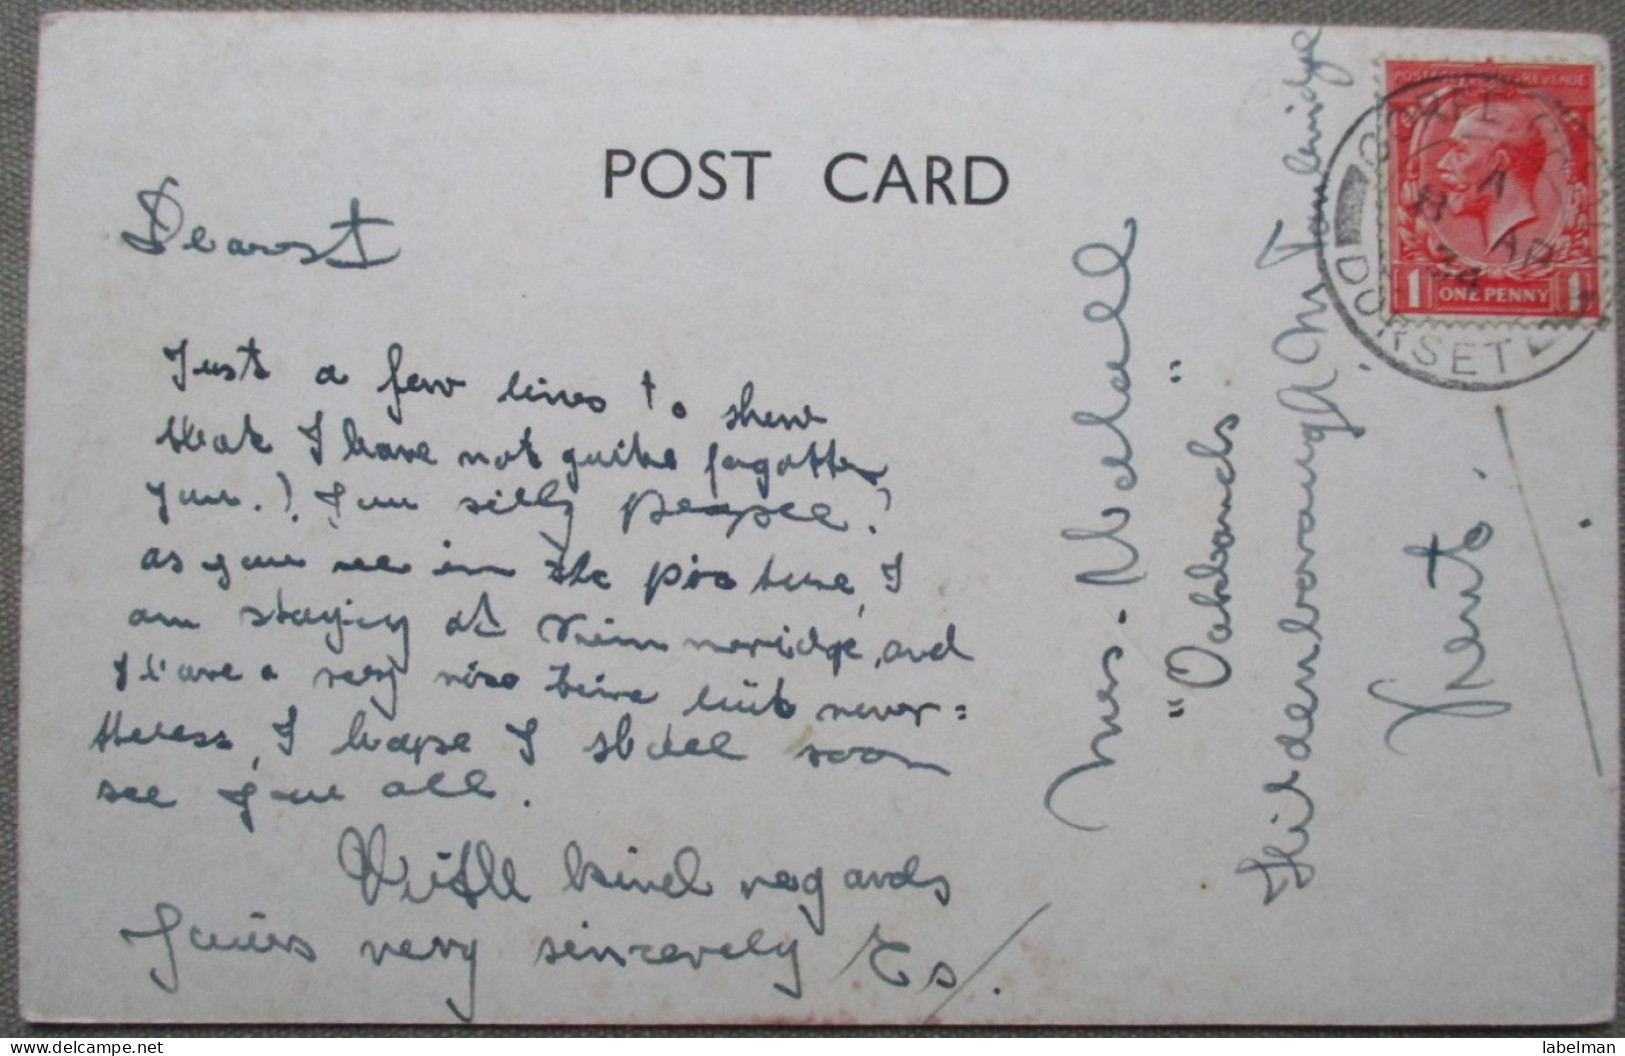 POST CARD
Dearest
Just a few lines to shew
that I have not quite fogotten
you.! You silly people!
as you see in the picture, I
am staying at Kimmeridge, and
I have a very nice time but never=
theless, I hope I shall soon
see you all.
With kind regards
Yours very sincerely
Mrs.
"Oaklands"
Hildenborough Nr Tonbridge
Kent.
POSTAGE REVENUE
1 ONE PENNY 1
CORFE
A
AP
34
DORSET
labelman
delcampe.net